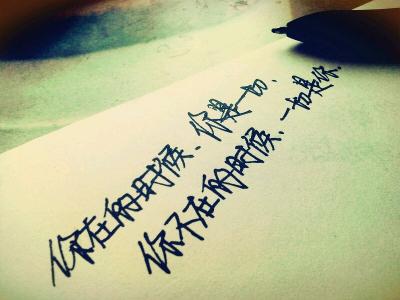 你在的时候、你是一切、
你不在的时候、一切是你、